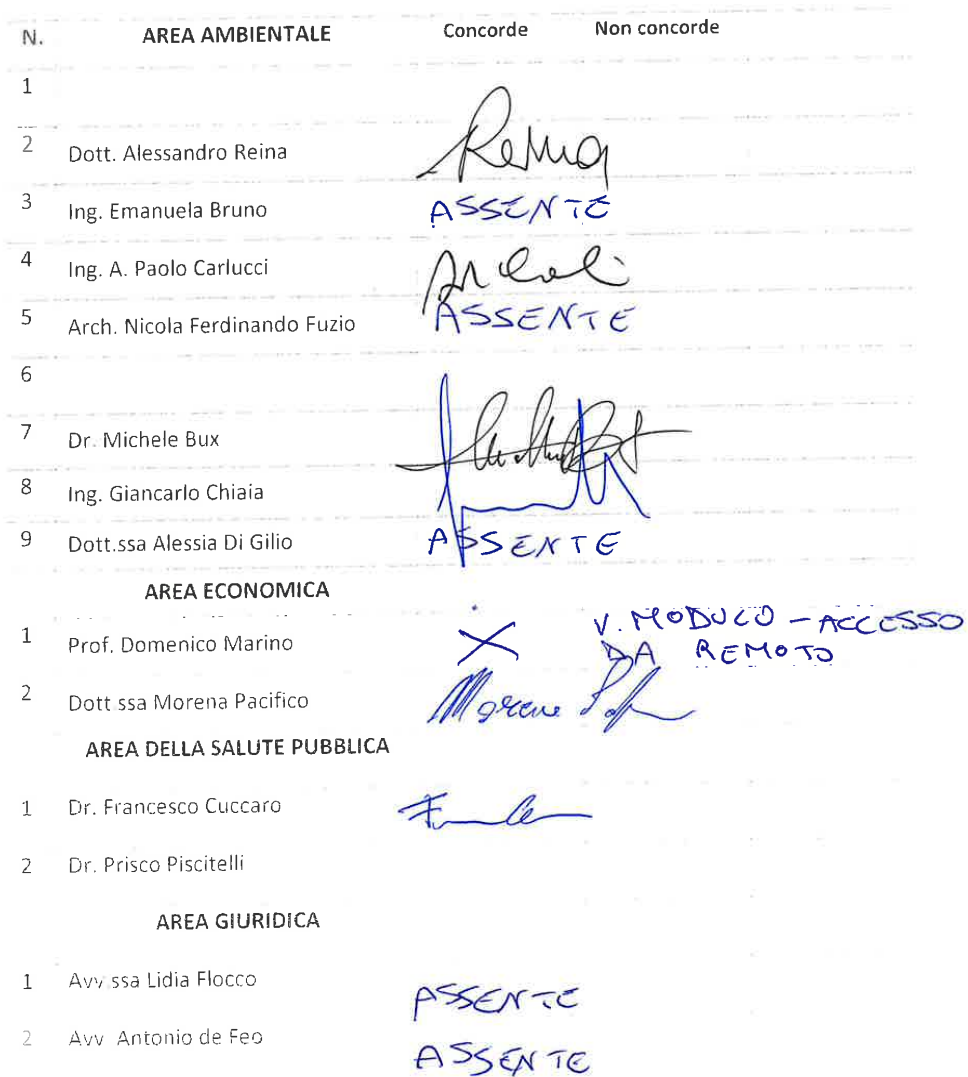 N. AREA AMBIENTALE Concorde Non concorde
1
2 Dott. Alessandro Reina Reina
3 Ing. Emanuela Bruno ASSENTE
4 Ing. A. Paolo Carlucci
5 Arch. Nicola Ferdinando Fuzio ASSENTE
6
7 Dr. Michele Bux
8 Ing. Giancarlo Chiaia
9 Dott.ssa Alessia Di Gilio ASSENTE
AREA ECONOMICA
1 Prof. Domenico Marino X V. MODULO - ACCESSO
DA REMOTO
2 Dott.ssa Morena Pacifico Morena
AREA DELLA SALUTE PUBBLICA
1 Dr. Francesco Cuccaro
2 Dr. Prisco Piscitelli
AREA GIURIDICA
1 Avv.ssa Lidia Flocco ASSENTE
2 Avv Antonio de Feo ASSENTE